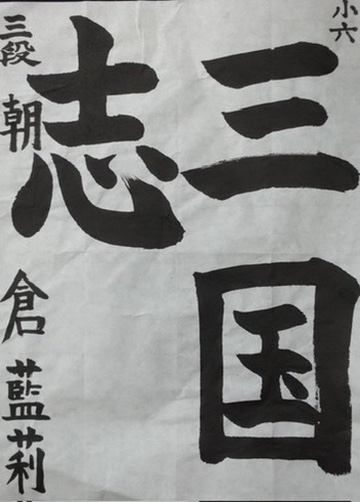 小六
三国
志
三段 朝倉藍莉